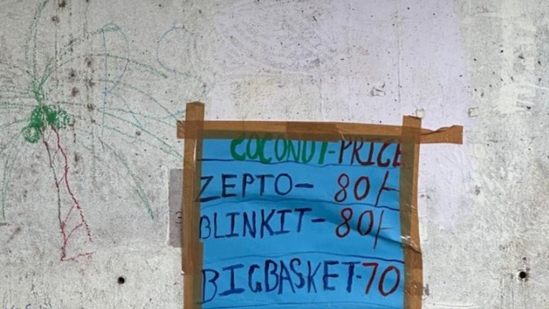 COCONUT-PRICE
ZEPTO- 80/-
BLINKIT- 80/-
BIGBASKET-70